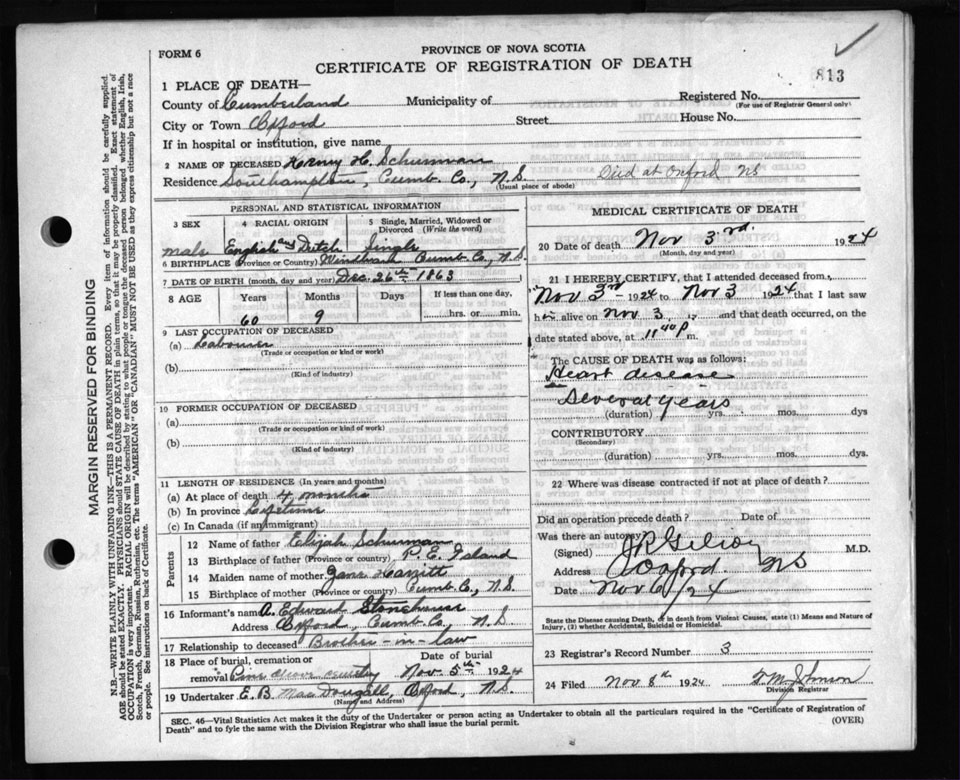 FORM 6
PROVINCE OF NOVA SCOTIA
CERTIFICATE OF REGISTRATION OF DEATH
813
1 PLACE OF DEATH—
County of Cumberland Municipality of Registered No.
(For use of Registrar General only)
City or Town Oxford Street House No.
If in hospital or institution, give name
2 NAME OF DECEASED Henry H. Schurman
Residence Southampton, Cumb. Co., N.S. Died at Oxford NS
(Usual place of abode)
PERSONAL AND STATISTICAL INFORMATION
3 SEX 4 RACIAL ORIGIN 5 Single, Married, Widowed or Divorced (Write the word)
male English and Dutch Single
6 BIRTHPLACE (Province or Country) Cumb. Co., N.S.
7 DATE OF BIRTH (month, day and year) Dec. 26th 1863
8 AGE Years Months Days If less than one day,
60 9 hrs. or min.
9 LAST OCCUPATION OF DECEASED
(a) Labourer
(Trade or occupation or kind or work)
(b)
(Kind of industry)
10 FORMER OCCUPATION OF DECEASED
(a)
(Trade or occupation or kind or work)
(b)
(Kind of industry)
11 LENGTH OF RESIDENCE (In years and months)
(a) At place of death 4 months
(b) In province Lifetime
(c) In Canada (if an immigrant)
Parents
12 Name of father Elijah Schurman
13 Birthplace of father (Province or country) P.E. Island
14 Maiden name of mother Jane
15 Birthplace of mother (Province or country) Cumb. Co., N.S.
16 Informant's name A. Edward Stonehouse
Address Oxford, Cumb. Co., N.S.
17 Relationship to deceased Brother-in-law
18 Place of burial, cremation or Date of burial
removal Pine Grove cemetery Nov. 5th 1924
19 Undertaker E. B. MacDougall, Oxford, N.S.
(Name and Address)
MEDICAL CERTIFICATE OF DEATH
20 Date of death Nov 3rd. 1924
(Month, day and year)
21 I HEREBY CERTIFY, that I attended deceased from
Nov 3rd - 1924 to Nov 3 1924 that I last saw
him alive on Nov 3 and that death occurred, on
date stated above, at 11 40 P m.
The CAUSE OF DEATH was as follows:
Heart disease
Several years
(duration) yrs. mos. dys
CONTRIBUTORY
(Secondary)
(duration) yrs. mos. dys.
22 Where was disease contracted if not at place of death?
Did an operation precede death? Date of
Was there an autopsy?
(Signed) M.D.
Address Oxford NS
Date Nov 6/24
State the Disease causing Death, or in death from Violent Causes, state (1) Means and Nature of Injury, (2) whether Accidental, Suicidal or Homicidal.
23 Registrar's Record Number 3
24 Filed Nov 8th 1924
Division Registrar
SEC. 46—Vital Statistics Act makes it the duty of the Undertaker or person acting as Undertaker to obtain all the particulars required in the "Certificate of Registration of
Death" and to fyle the same with the Division Registrar who shall issue the burial permit. (OVER)
MARGIN RESERVED FOR BINDING
N.B.—WRITE PLAINLY WITH UNFADING INK—THIS IS A PERMANENT RECORD. Every item of information should be carefully supplied.
AGE should be stated EXACTLY. PHYSICIANS should STATE CAUSE OF DEATH in plain terms, so that it may be properly classified. Exact statement of
OCCUPATION is very important. RACIAL ORIGIN will be described by stating to what people or tongue the deceased person belonged whether English, Irish,
Scotch, French, German, Russian, Ruthenian, etc. The terms "AMERICAN" OR "CANADIAN" MUST NOT BE USED as they express citizenship but not a race
or people. See instructions on back of Certificate.